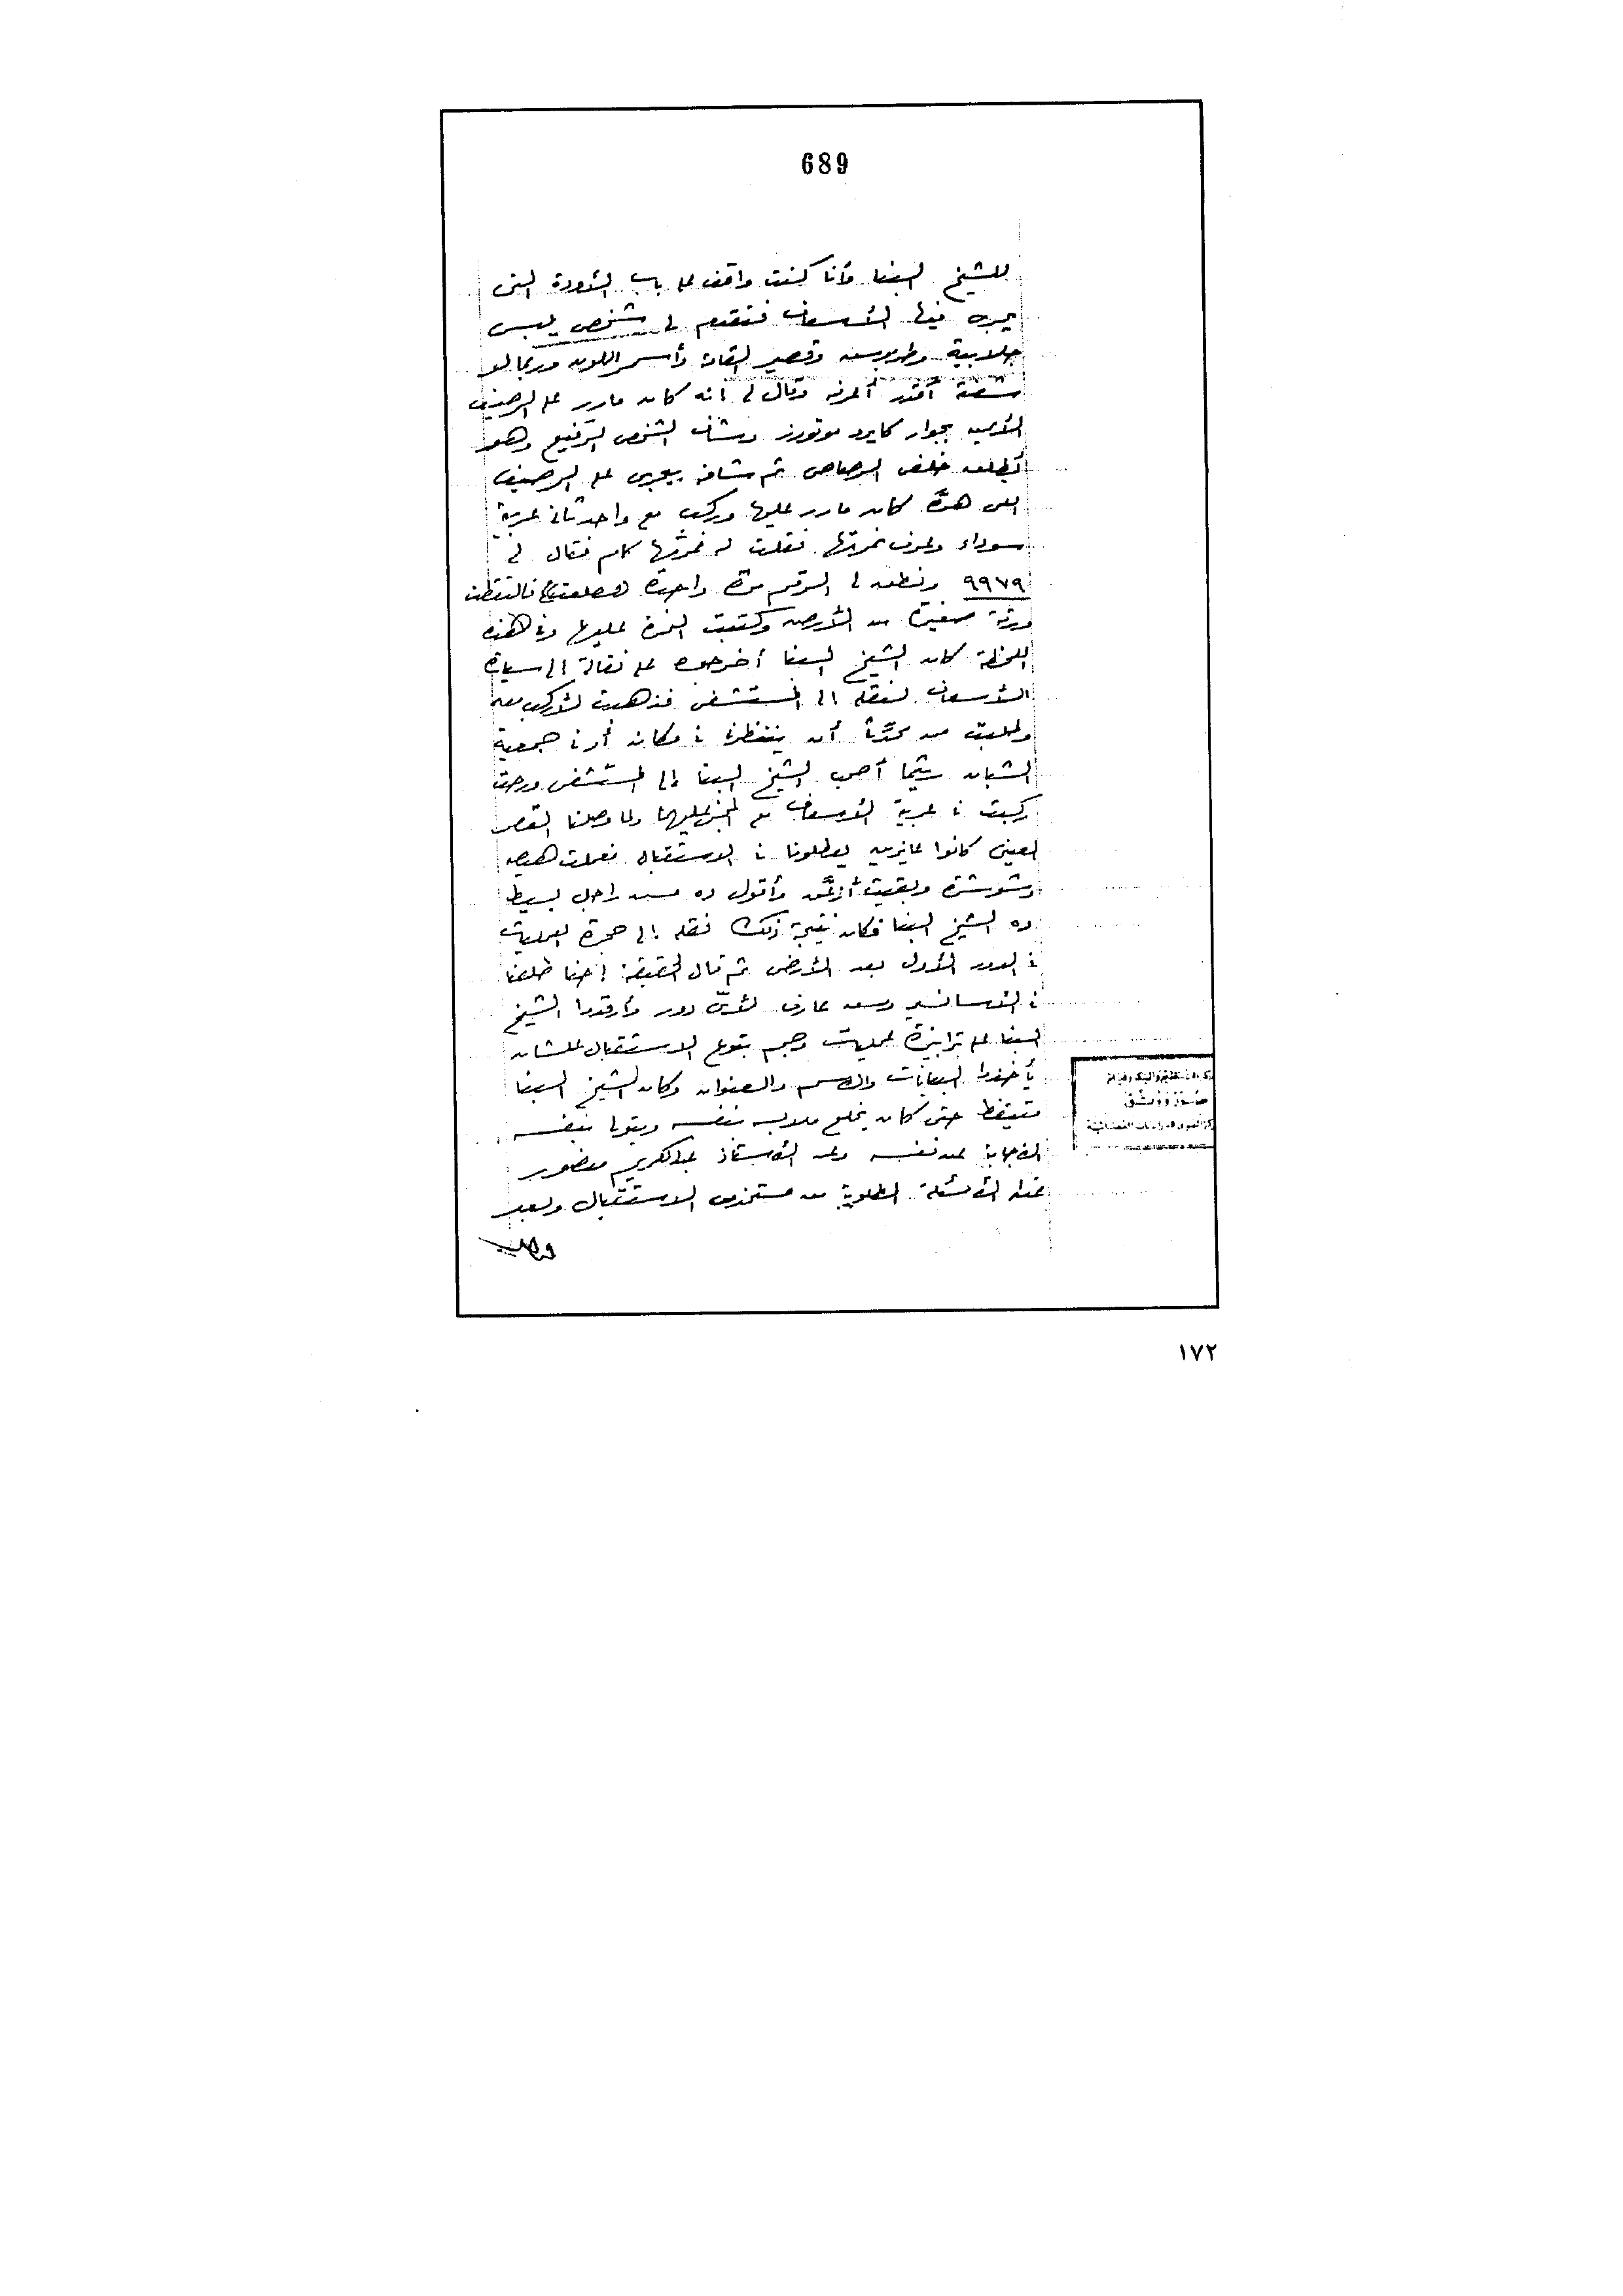 689
للشيخ البنا وأنا كنت واقف على باب الأودة التى
يجرى فيها الأسعاف فتقدم لى شخص يلبس
جلابية وطربوش وقصير القامة وأسمر اللون وربما لو
شفته أقدر أعرفه وقال لى انه كان مارر على الرصيف
الأيمن بجوار كايرو موتورز وشاف الشخص الرفيع وهو
أطلق خلف الرصاص ثم شافه بيجرى على الرصيف
اللى هوَّه كان مارر عليها وركب مع واحد تانى عربية
سوداء وعرف نمرتها فقلت له نمرتها كام فقال لى
٩٩٧٩ ونطق لى الرقم مرة واحدة فالتقطت
ورقة صغيرة من الأرض وكتبت النمرة عليها وفى هذه
اللحظة كان الشيخ البنا أخرجوه على نقالة الى سيارة
الأسعاف لنقله الى المستشفى فذهبت لأركب معه
وطلبت من محدّثى أن ينتظرنى فى مكانه أو فى جمعية
الشبان ريثما أصحب الشيخ البنا إلى المستشفى ورحت
ركبت فى عربية الأسعاف مع المجنى عليهما ولما وصلنا القصر
العينى كانوا عايزين يعطلونا فى الاستقبال فعملت هيصه
وشوشرة وبقيت أزعَّق وأقول ده مش راجل بسيط
ده الشيخ البنا فكان نتيجة ذلك نقله إلى حجرة العمليات
فى الدور الأول بعد الأرضى ثم قال الحقيقة احنا طلعنا
فى الأسانسير ومش عارف لأىّ دور وأرقدوا الشيخ
البنا على ترابيزة عمليات وجم بتوع الاستقبال علشان
يأخذوا البيانات والاسم والعنوان وكان الشيخ البنا
متيقظ حتى كان يخلع ملابسه بنفسه ويتولى بنفسه
الاجابة عن نفسه وعن الأستاذ عبد الكريم منصور
عن الأسئلة المطلوبة من مستخدمى الاستقبال وبعد
١٧٢